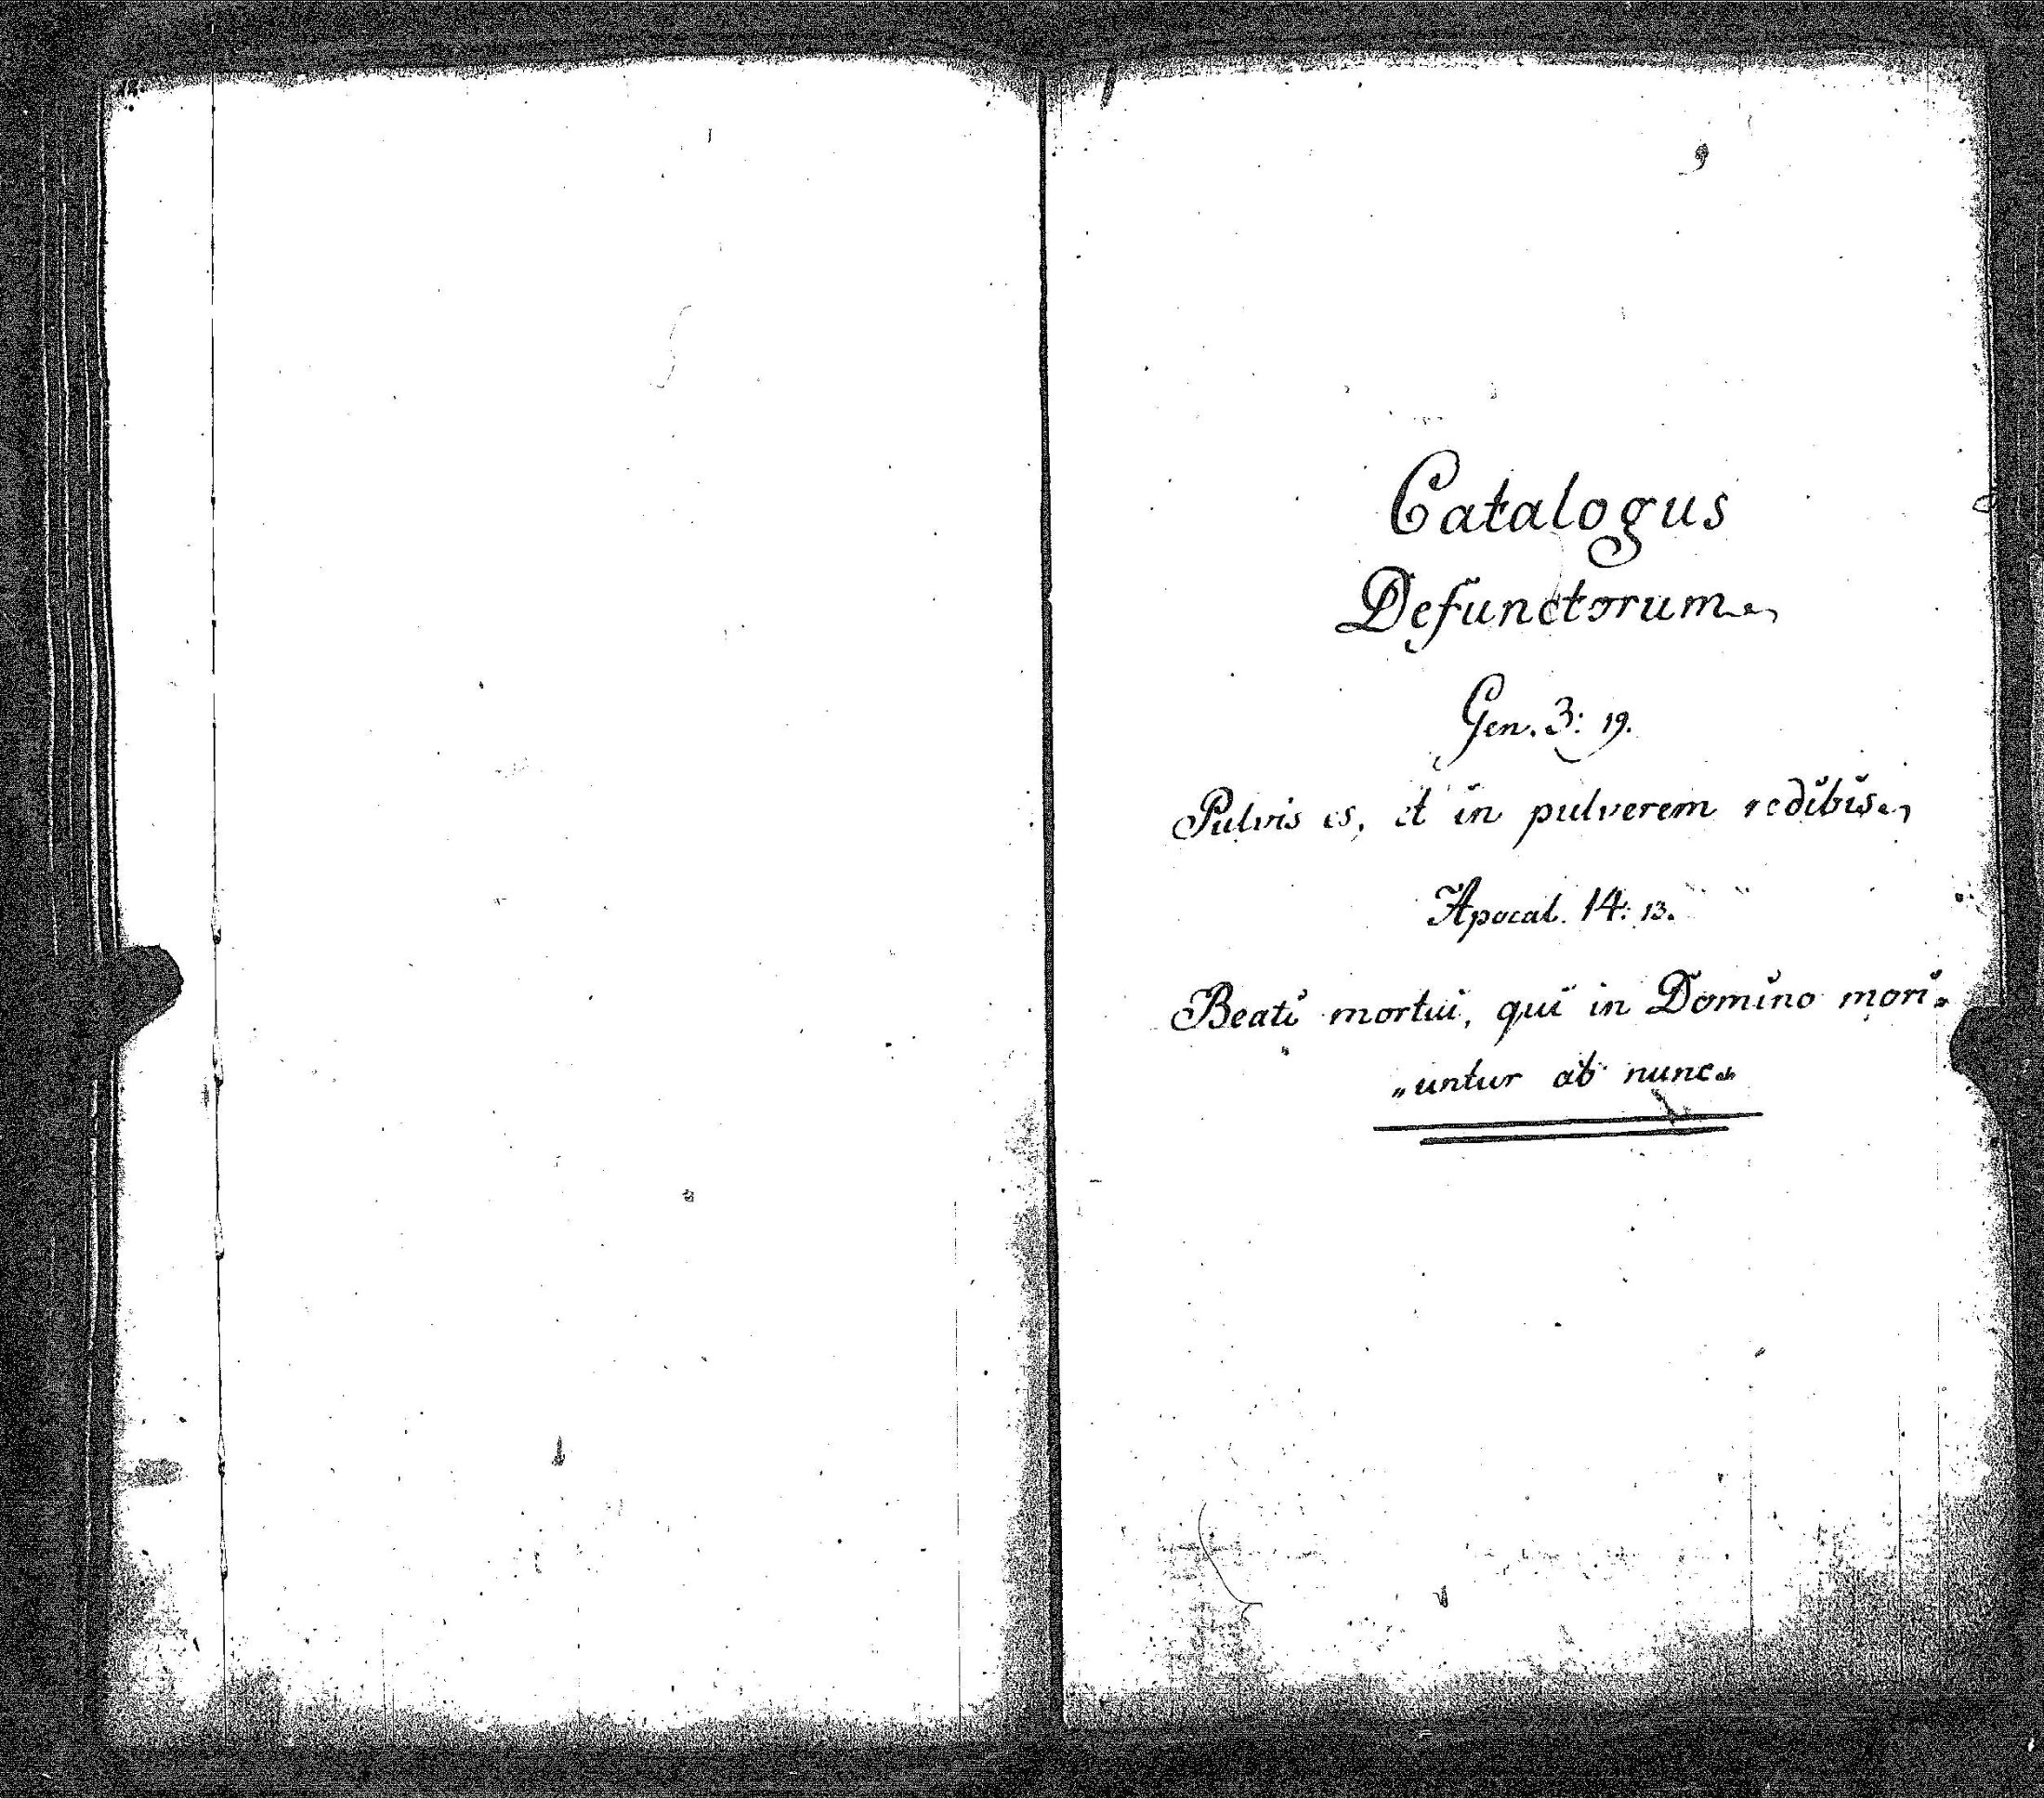 9
Catalogus
Defunctorum
Gen. 3: 19.
Pulvis es, et in pulverem redibis.
Apocal. 14: 13.
Beati mortui, qui in Domino mori=
„untur ab nunc.